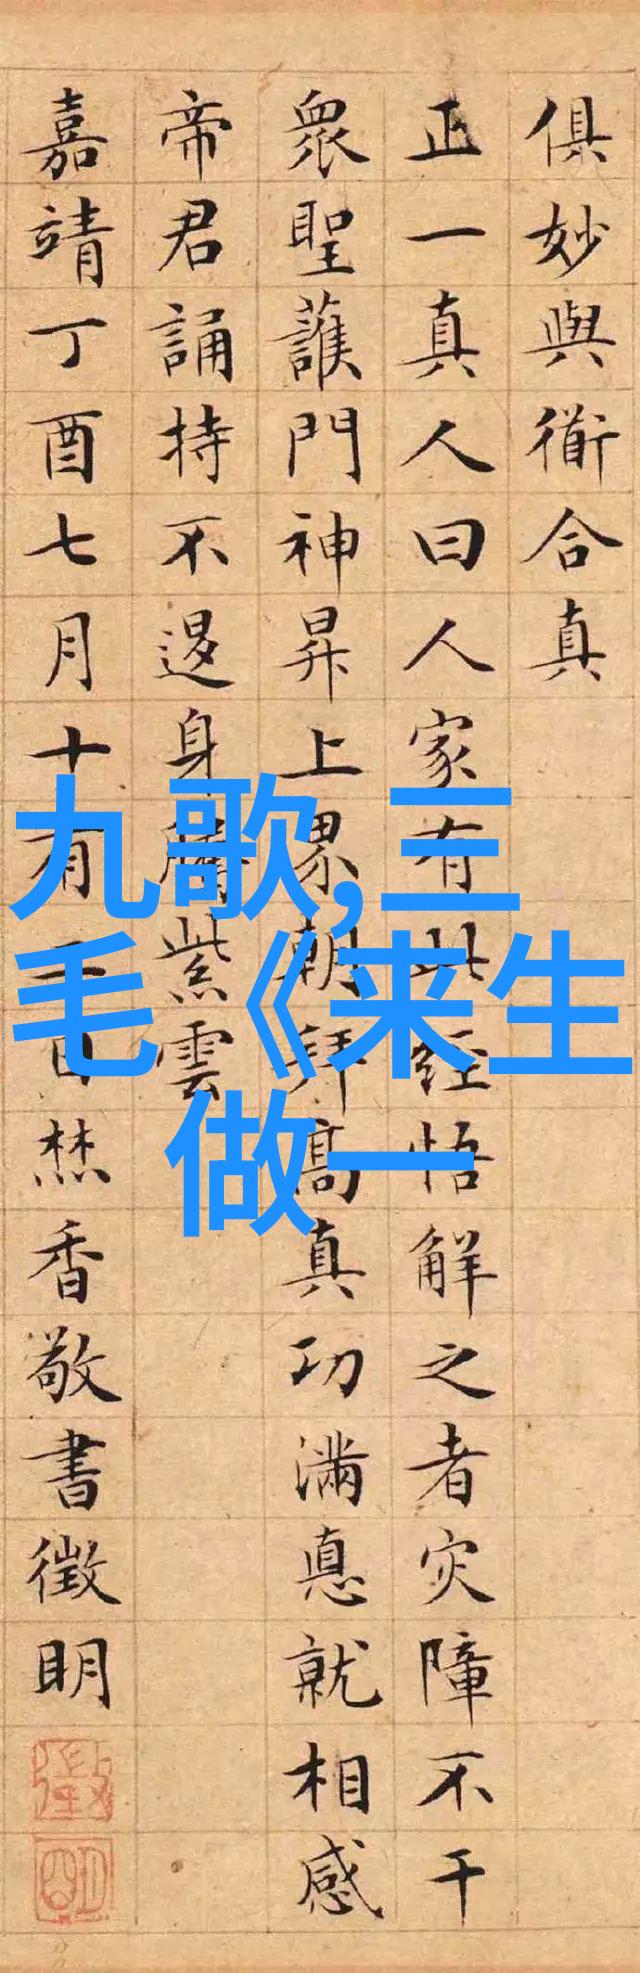 俱妙與衜合真
正一真人曰人家有此經悟解之者灾障不干
眾聖護門神昇上界朝拜高真功滿悳就相感
帝君誦持不退身騰紫雲
嘉靖丁酉七月十有日焚香敬書徵明
徵
明
九歌,三
毛《来生
做一